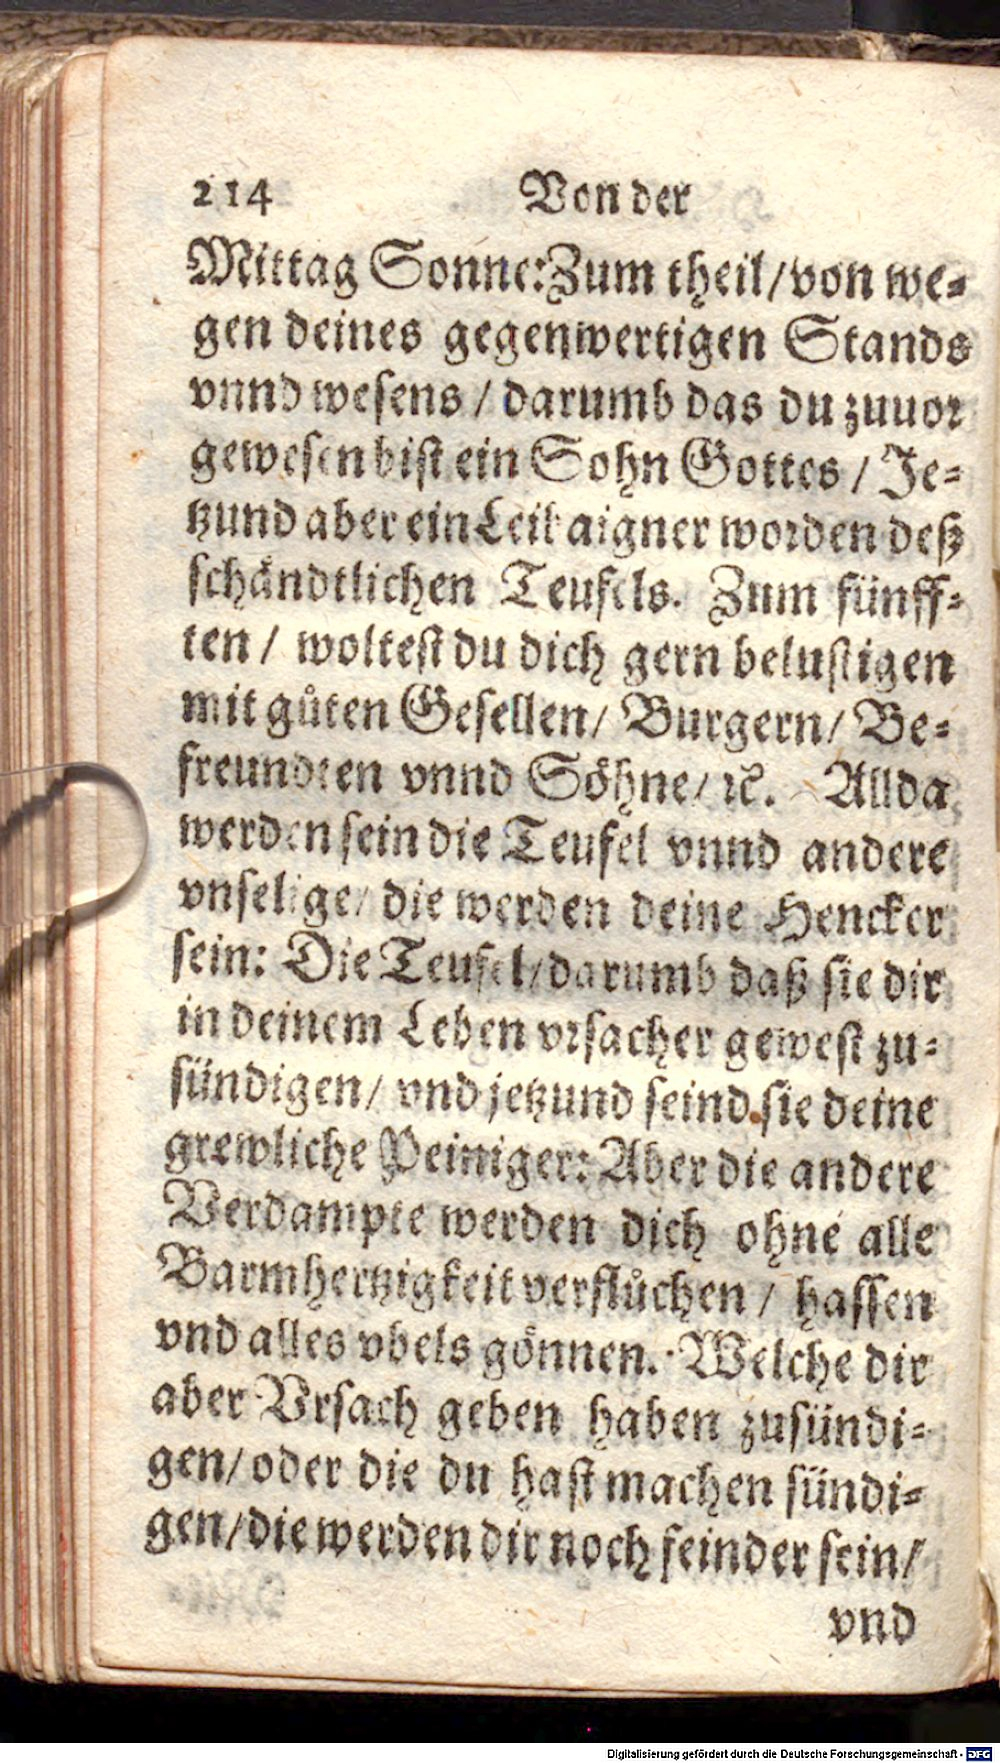 214 Von der
Mittag Sonne: Zum theil/ von we-
gen deines gegenwertigen Stands
vnnd wesens / darumb das du zuuor
gewesen bist ein Sohn Gottes / Je-
tzund aber ein Leibaigner worden deß
schändtlichen Teufels. Zum fünff-
ten / woltest du dich gern belustigen
mit gůten Gesellen/ Burgern/ Be-
freundten vnnd Söhne/ ꝛc. Allda
werden sein die Teufel vnnd andere
vnselige/ die werden deine Hencker
sein: Die Teufel/ darumb daß sie dir
in deinem Leben vrsacher gewest zu-
sündigen/ vnd jetzund seind sie deine
grewliche Peiniger: Aber die andere
Verdampte werden dich ohne alle
Barmhertzigkeit verflůchen / hassen
vnd alles vbels gönnen. Welche dir
aber Vrsach geben haben zusündi-
gen/ oder die du hast machen sündi-
gen/ die werden dir noch feinder sein/
vnd
Digitalisierung gefördert durch die Deutsche Forschungsgemeinschaft - DFG